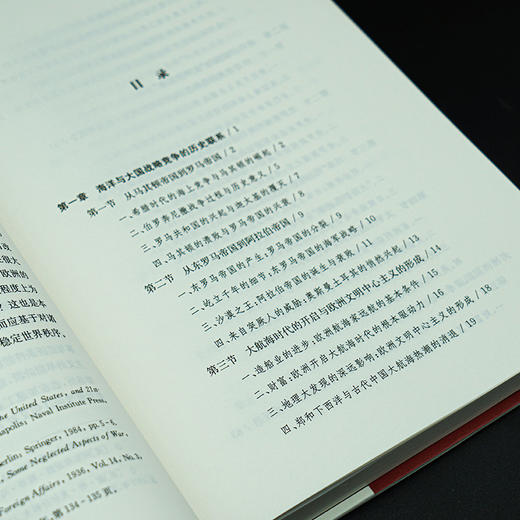 很大
欧洲的
程度上为
？这也是本
而应基于对诸
稳定世界秩序。
the United States, and 21st
apolis; Naval Institute Press,
erlin; Springer, 1984, pp.5-6.
Some Neglected Aspects of War,
Foreign Affairs, 1936, Vol.14, No.3,
第134-135页。
目 录
第一章 海洋与大国战略竞争的历史联系 / 1
第一节 从马其顿帝国到罗马帝国 / 2
一、希腊时代的海上竞争与马其顿的崛起 / 2
二、伯罗奔尼撒战争过程与历史意义 / 5
三、罗马共和国的兴起与迦太基的覆灭 / 7
四、马其顿的溃败与罗马帝国的兴衰 / 8
第二节 从东罗马帝国到阿拉伯帝国 / 9
一、东罗马帝国的产生：罗马帝国的分裂 / 9
二、屹立千年的细节：东罗马帝国的海军战略 / 10
三、沙漠之王：阿拉伯帝国的诞生与衰败 / 11
四、来自突厥人的威胁：奥斯曼土耳其的悄然兴起 / 13
第三节 大航海时代的开启与欧洲文明中心主义的形成 / 14
一、造船业的进步：欧洲航海家远航的基本条件 / 15
二、财富：欧洲开启大航海时代的根本驱动力 / 16
三、地理大发现的深远影响：欧洲文明中心主义的形成 / 18
四、郑和下西洋与古代中国大航海热潮的消退 / 19